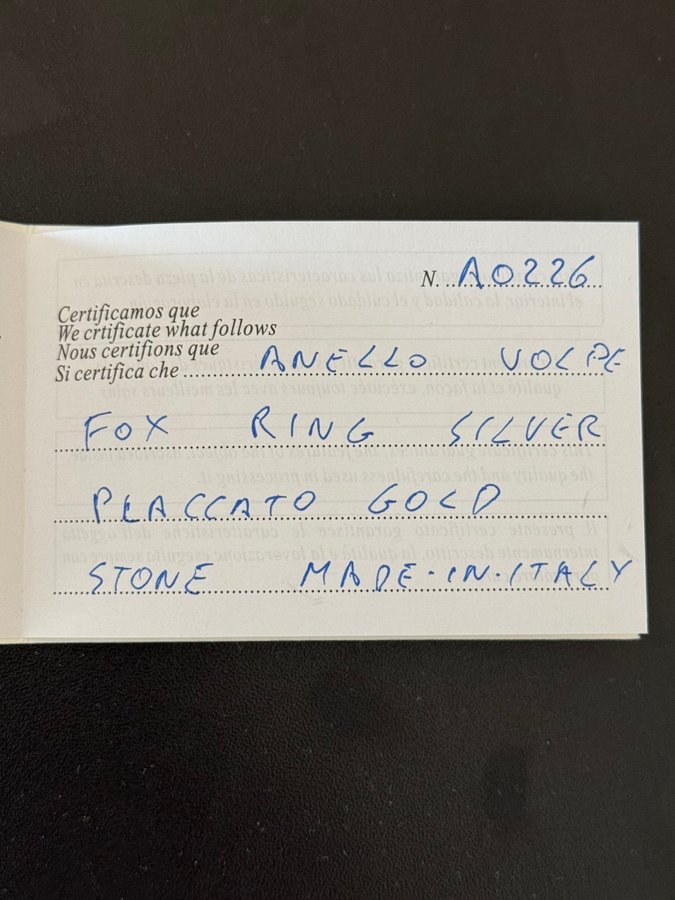 N. A0226
Certificamos que
We crtificate what follows
Nous certifions que
Si certifica che ANELLO VOLPE
FOX RING SILVER
PLACCATO GOLD
STONE MADE·IN·ITALY